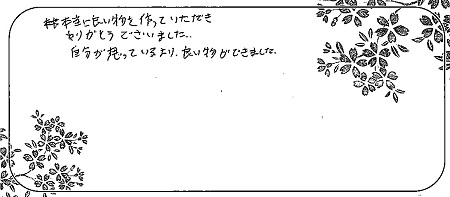 本当に良い物を作っていただき
ありがとうございました。
自分が思っているより、良い物ができました。